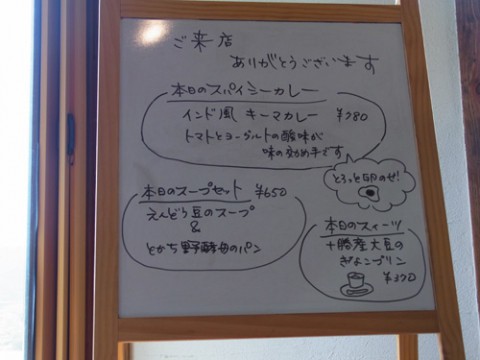 ご来店
ありがとうございます
本日のスパイシーカレー
インド風 キーマカレー ¥780
トマトとヨーグルトの酸味が
味の効め手です
とろっと卵のせ!
本日のスープセット ¥650
えんどう豆のスープ
&
とかち野酵母のパン
本日のスィーツ
十勝産大豆の
ぎょんプリン
¥370